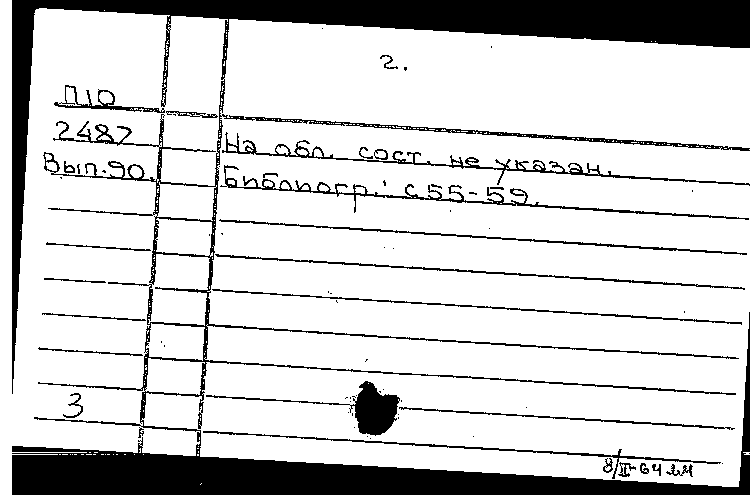 2.
П10
2487
Вып.90.
На обл. сост. не указан.
Библиогр.: с.55-59.
3
8/II-64